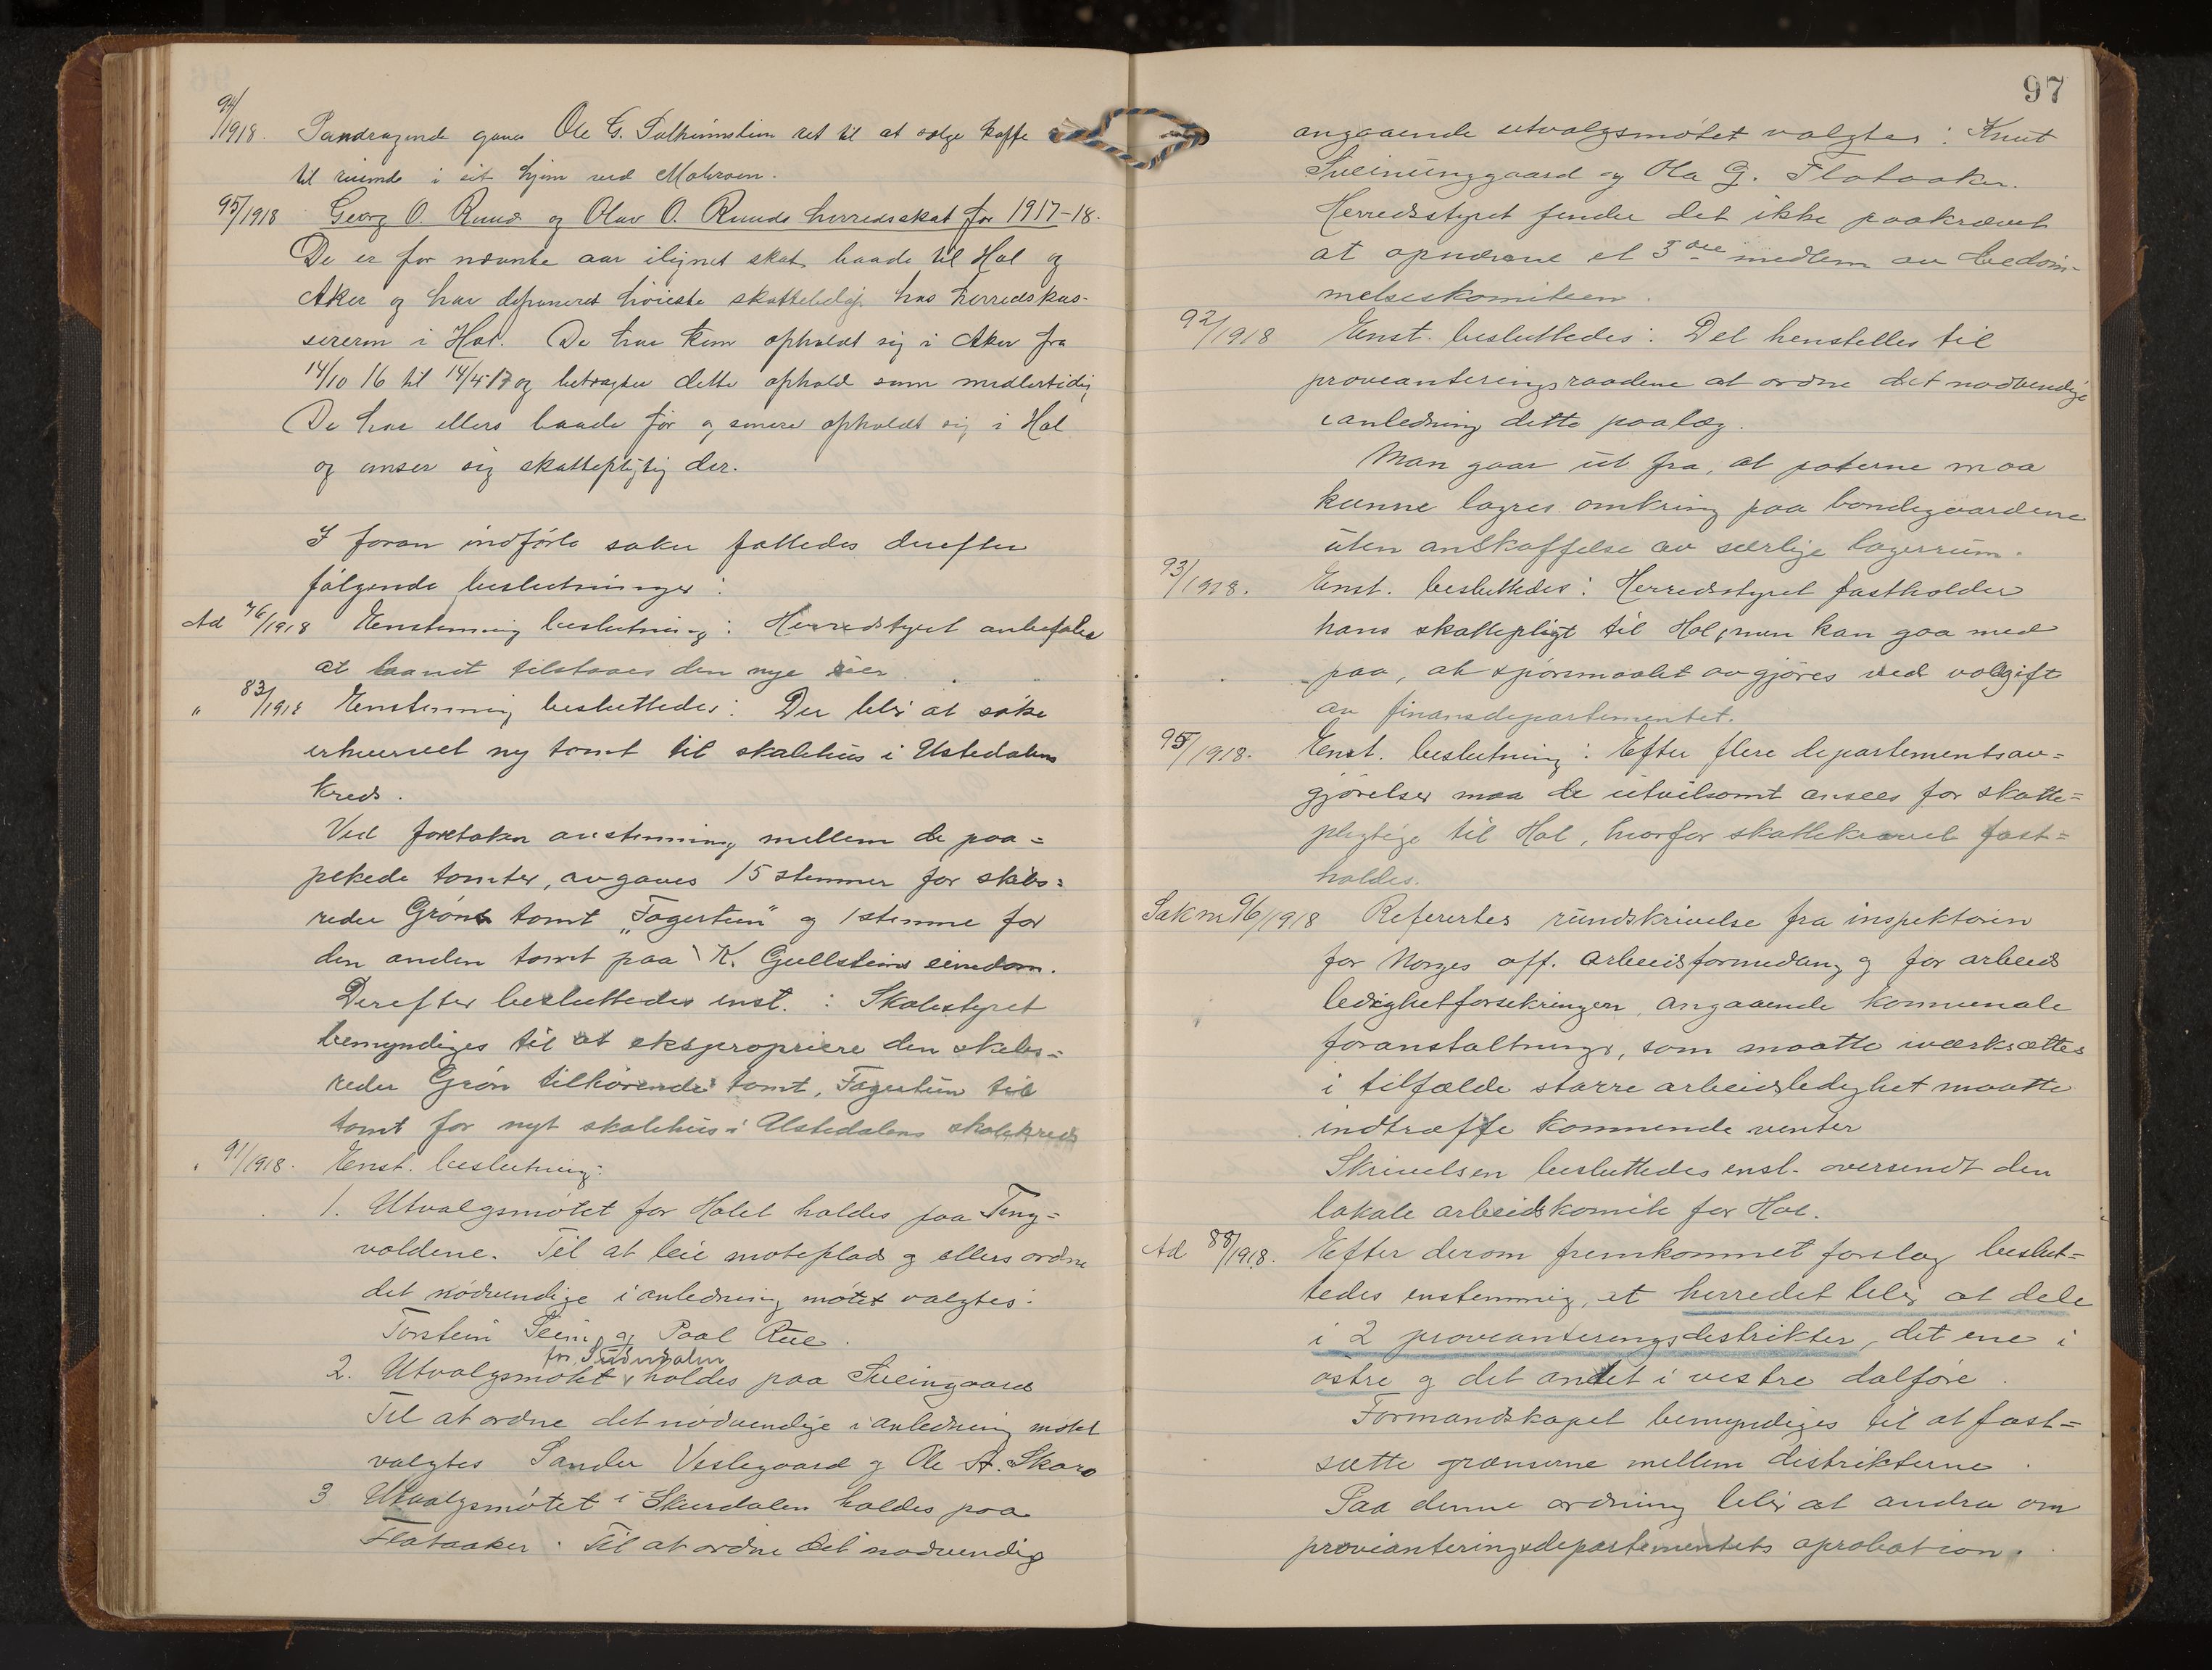 94/1918. Pandragende gaves Ole G. Solheimslien ret til at sælge kaffe
til reisende i sit hjem ved Mohroen.
95/1918 Georg O. Ruud og Olav O. Ruuds herredsskat for 1917-18.
De er for nævnte aar ilignet skat baade til Hol og
Aker og har deponeret høieste skattebeløp hos herredskas-
sereren i Hol. De har kun opholdt sig i Aker fra
14/10 16 til 14/4-17 og betragter dette ophold som midlertidig
De har ellers baade før og senere opholdt sig i Hol
og anser sig skattepligtig der.
I foran indførte saker fattedes derefter
følgende beslutninger:
Ad 76/1918 Enstemmig beslutning: Herredstyret anbefaler
at laanet tilstaaes den nye eier.
" 83/1918 Enstemmig besluttedes: Der blir at søke
erhvervet ny tomt til skolehus i Ustedalens
kreds.
Ved foretaken avstemning mellem de paa=
pekede tomter, avgaves 15 stemmer for skibs=
reder Grøns tomt "Fagertun" og 1 stemme for
den anden tomt paa K. Gullsteins eiendom.
Derefter besluttedes enst.: Skolestyret
bemyndiges til at ekspropriere den skibs=
reder Grøn tilhørende tomt, Fagertun til
tomt for nyt skolehus i Ustedalens skolekreds
" 91/1918. Enst. beslutning:
1. Utvalgsmøtet for Holet holdes paa Ting=
voldene. Til at leie møteplads og ellers ordne
det nødvendige i anledning møtet valgtes:
Torstein Sein og Paal Rue.
for Sudndalen
2. Utvalgsmøtet holdes paa Sveingaard
Til at ordne det nødvendige i anledning møtet
valgtes Sander Veslegaard og Ole A. Skaro
3 Utvalgsmøtet i Skurdalen holdes paa
Flataaker. Til at ordne det nødvendig
97
angaaende utvalgsmøtet valgtes: Knut
Sveinunggaard og Ola G. Flataaker.
Herredsstyret finder det ikke paakrævet
at opnævne et 3die medlem av bedøm-
melseskomiteen.
92/1918 Enst. besluttedes: Det henstilles til
provianteringsraadene at ordne det nødvendige
i anledning dette paalæg.
Man gaar ut fra, at poterne maa
kunne lagres omkring paa bondegaardene
uten anskaffelse av særlige lagerrum.
93/1918. Enst. besluttedes: Herredsstyret fastholder
hans skattepligt til Hol, men kan gaa med
paa, at spørsmaalet avgjøres ved voldgift
av finansdepartementet.
95/1918. Enst. beslutning: Efter flere departementsav=
gjørelser maa de utvilsomt ansees for skatte=
pligtige til Hol, hvorfor skattekravet fast=
holdes.
Sak nr 96/1918 Refereres rundskrivelse fra inspektøren
for Norges off. arbeidsformidling og for arbeids
ledighetforsekringen, angaaende kommunale
foranstaltninger, som maatte iværksættes
i tilfælde større arbeidsledighet maatte
indtræffe kommende vinter
Skrivelsen besluttedes enst. oversendt den
lokale arbeidskomite for Hol.
Ad 88/1918. Efter derom fremkommet forslag beslut=
tedes enstemmig, at herredet blir at dele
i 2 provianteringsdistrikter, det ene i
østre og det andet i vestre dalføre.
Formandskapet bemyndiges til at fast=
sætte grænserne mellem distrikterne.
Paa denne ordning blir at andra om
provianteringsdepartementets aprobation.